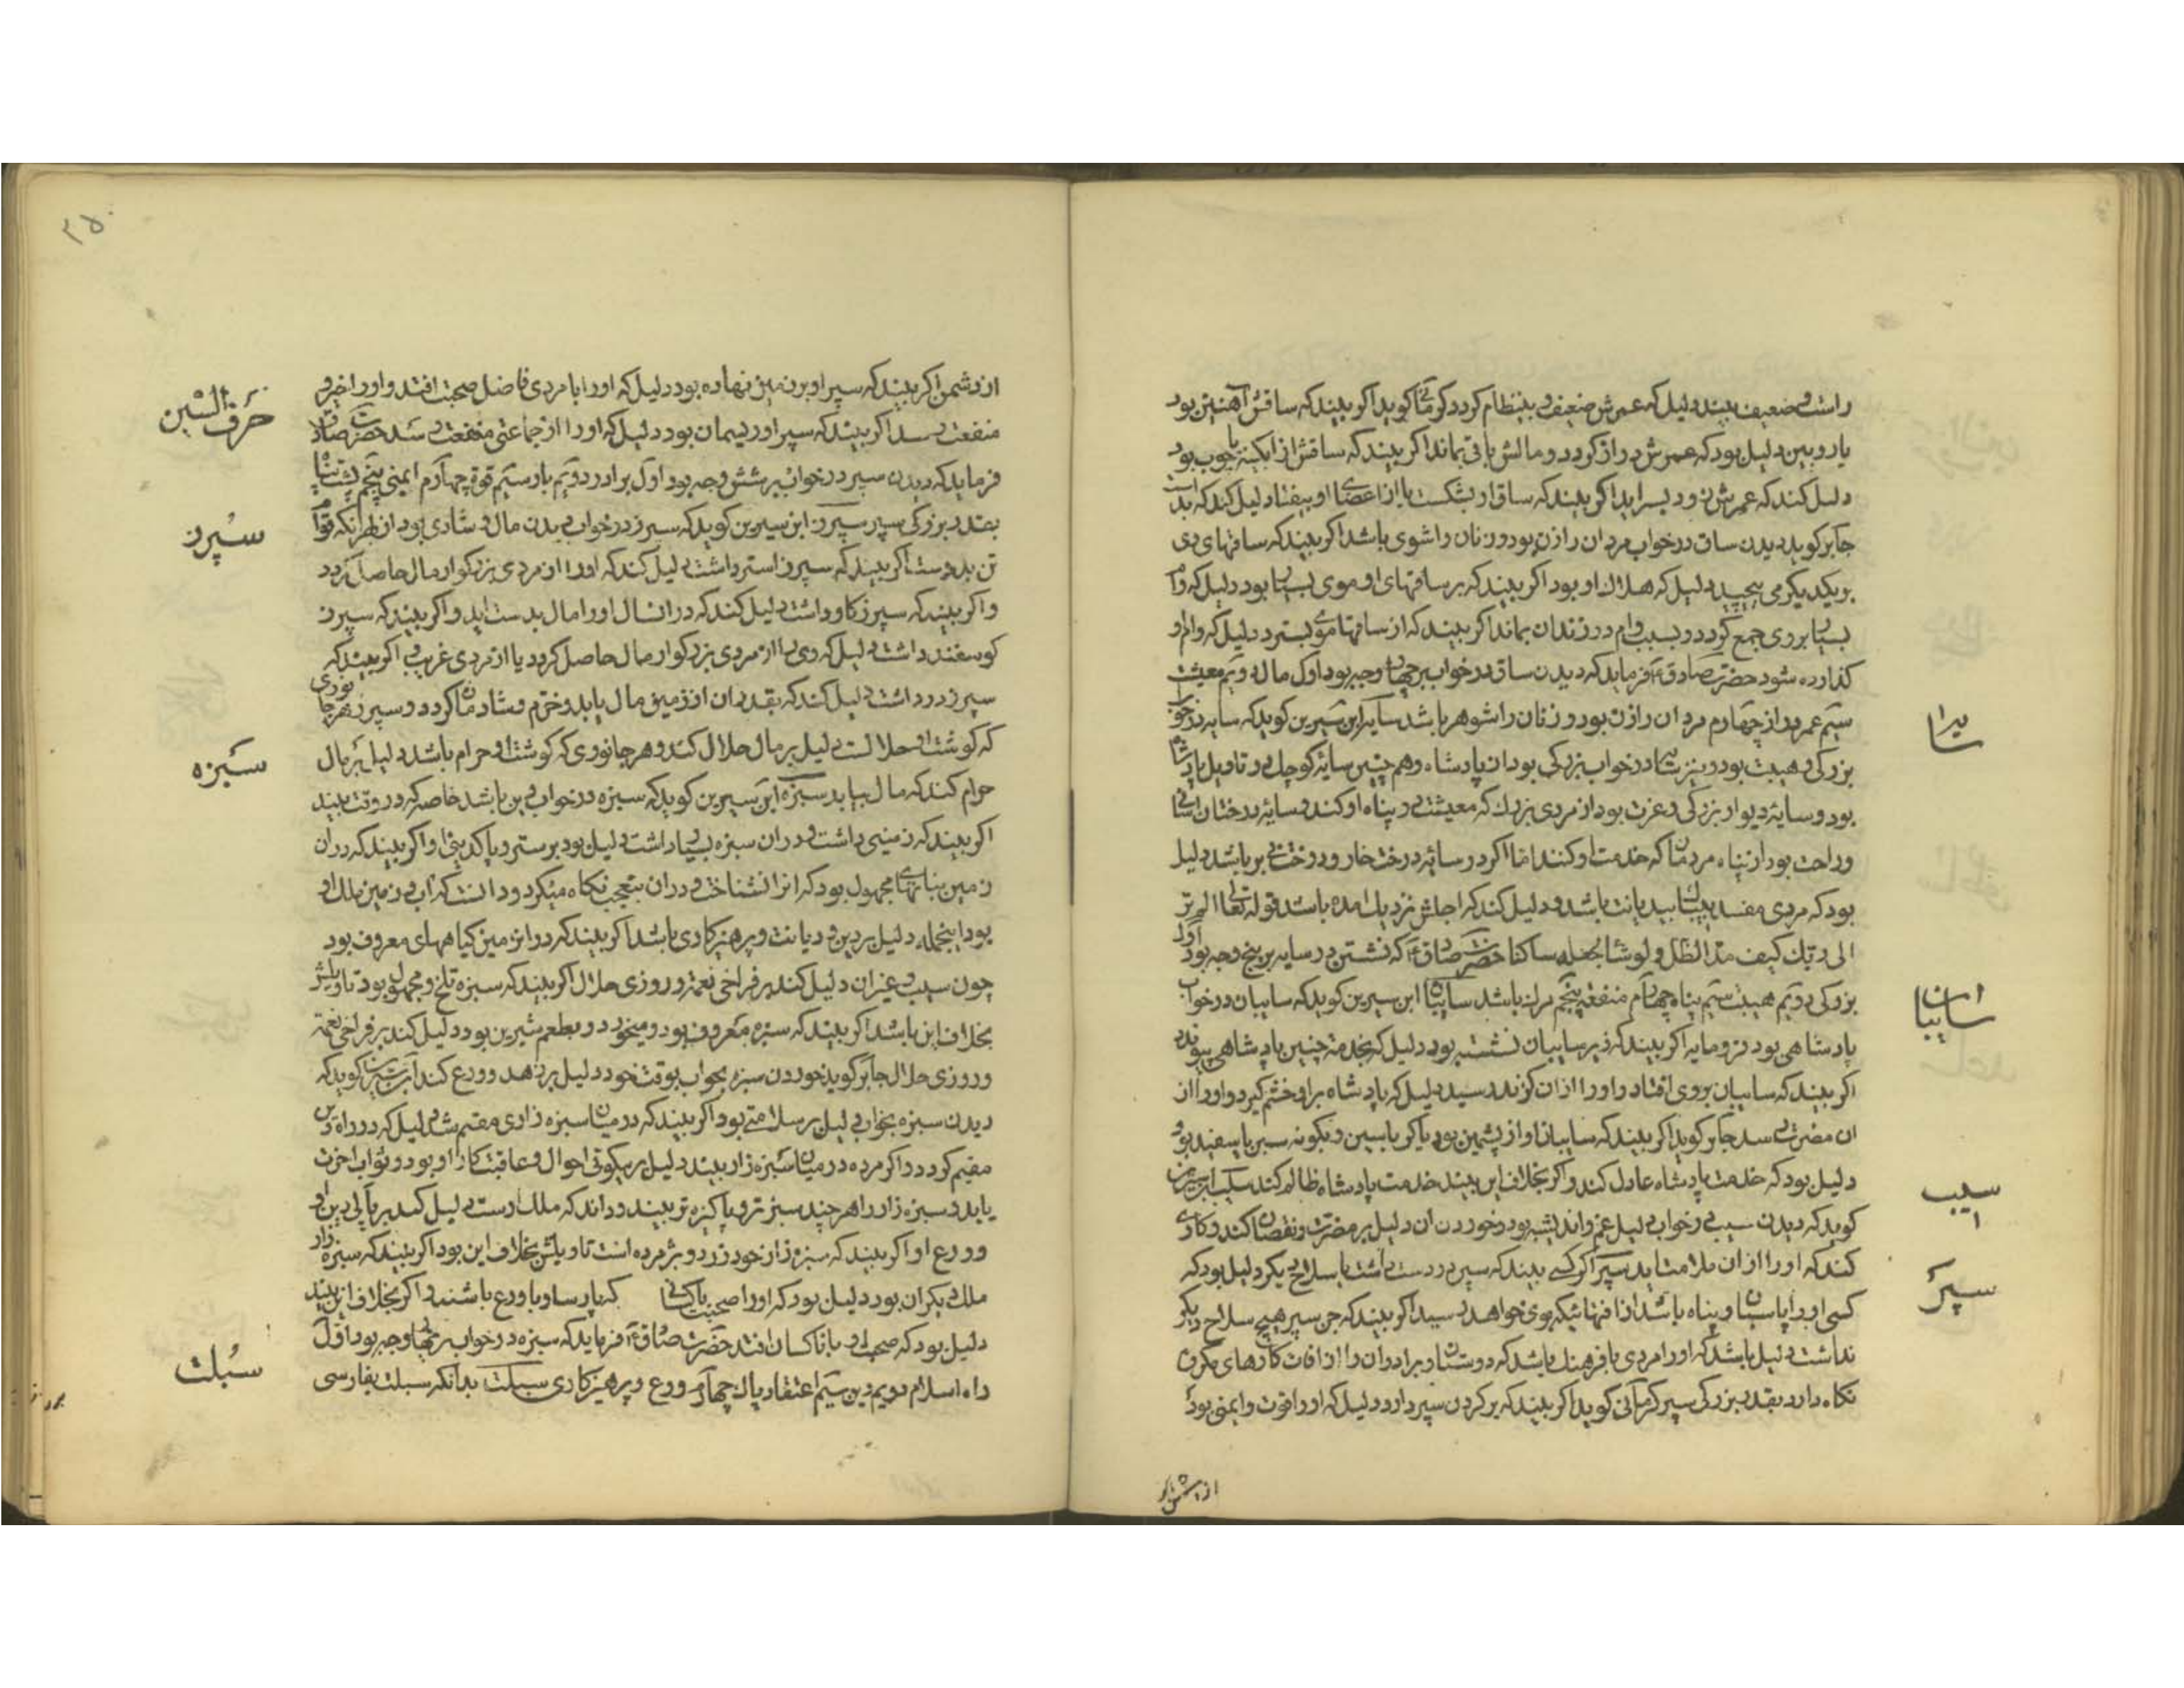 راست و ضعیف بیند دلیل که عمرش ضعیف و بینظام کردد کرمانی کوید اکر بیند که ساقش آهنین بود
یا رویین دلیل بود که عمرش دراز کردد و مالش باقی بماند اکر بیند که ساقش از ابکینه یا چوب بود
دلیل کند که عمرش زود بسر اید اکر بیند که ساق او بشکست یا از اعضای او بیفتاد دلیل کند که بد است
جابر کوید دیدن ساق در خواب مردان را زن بود و زنان را شوی باشد اکر بیند که ساقهای وی
بر یکدیکر می پیچید دلیل که هلاک او بود اکر بیند که بر ساقهای او موی بسیار بود دلیل که وام
بسیار بر وی جمع کردد و بسبب وام در زندان بماند اکر بیند که از ساقها موی بسترد دلیل که وام او
کذارده شود حضرت صادق ع فرماید که دیدن ساق در خواب بر چهار وجه بود اول مال دویم معیشت
سیم عمر دراز چهارم مردان را زن بود و زنان را شوهر باشد سایه ابن سیرین کوید که سایه در خواب
سایه را
بزرکی و هیبت بود و نیز سایه در خواب بزرکی بود از پادشاه و هم چنین سایۀ کوچک در تاویل پادشاه
بود و سایۀ دیوار بزرکی و عزت بود از مردی بزرك که معیشت در پناه او کند و سایۀ درختان اسانی
و راحت بود از پناه مردمان که خدمت او کنند اما اکر در سایۀ درخت خار و درخت بی بر باشد دلیل
بود که مردی مفسد بیدیانت باشد و دلیل کند که اجلش نزدیك امده باشد قوله تعالی الم تر
الی ربك کیف مد الظل و لو شا لجعله ساکنا حضرت صادق ع که نشستن در سایه بر پنج وجه بود اول
بزرکی دویم هیبت سیم پناه چهارم منفعة پنجم مراد باشد سایبان ابن سیرین کوید که سایبان در خواب
سایبان
پادشاهی بود فرومایه اکر بیند که زیر سایبان نشسته بود دلیل که بخدمة چنین پادشاهی پیوندد
اکر بیند که سایبان بر وی افتاد و او را از ان کزند رسید دلیل که پادشاه بر او خشم کیرد و او را از
ان مضرت رسد جابر کوید اکر بیند که سایبان او از پشمین بود یا کرباسین و بکونه سبز یا سفید بود
دلیل بود که خدمت پادشاه عادل کند و اکر بخلاف این بیند خدمت پادشاه ظالم کند سیب ابن سیرین
سیب
کوید که دیدن سیب در خواب دلیل غم و اندیشه بود و خوردن ان دلیل بر مضرت و نقصان کند و کاری
کند که او را از ان ملامت اید سپر اکر کسی بیند که سپر در دست داشت با سلاح دیکر دلیل بود که
سپر
کسی او را پاسبان و پناه باشد از افتهائیکه بوی خواهد رسید اکر بیند که جز سپر هیچ سلاح دیکر
نداشت دلیل باشد که او را مردی با فرهنك باشد که دوستان و برادران را از افات کارهای مکروه
نکاه دارد بقدر بزرکی سپر کرمانی کوید اکر بیند که بر کردن سپر دارد دلیل که او را قوت و ایمنی بود
از دشمن اکر
۲۵۰
از دشمن اکر بیند که سپر او بر زمین نهاده بود دلیل که او را با مردی فاضل صحبت افتد و او را خیر و
حرف السین
منفعت رسد اکر بیند که سپر او ریسمان بود دلیل که او را از جماعتی منفعت رسد حضرت صادق
فرماید که دیدن سپر در خواب بر شش وجه بود اول برادر دویم یار سیم قوة چهارم ایمنی پنجم پشتیبان
بقدر بزرکی سپر سپرز ابن سیرین کوید که سپرز در خواب دیدن مال و شادی بود از بهر انکه قوام
سپرز
تن بدوست اکر بیند که سپرز استر داشت دلیل کند که او را از مردی بزرکوار مال حاصل کردد
و اکر بیند که سپرز کاو داشت دلیل کند که در ان سال او را مال بدست اید و اکر بیند که سپرز
کوسفند داشت دلیل که وی را از مردی بزرکوار مال حاصل کردد یا از مردی غریب اکر بیند که
سپرز درد داشت دلیل کند که بقدر ان از زمین مال یابد و خرم و شادمان کردد و سپرز هر جانوری
که کوشت او حلالست دلیل بر مال حلال کند و هر جانوری که کوشت او حرام باشد دلیل بر مال
حرام کند که مال بیابد سبزه ابن سیرین کوید که سبزه در خواب دین باشد خاصه که در وقت بیند
سبزه
اکر بیند که زمینی داشت و در ان سبزه بسیار داشت دلیل بود بر ستر و پاکدینی او اکر بیند که در ان
زمین نباتهای مجهول بود که انرا نشناخت و در ان بتعجب نکاه میکرد و دانست که اب و زمین ملك او
بود اینجمله دلیل بر دین و دیانت و پرهیزکاری باشد اکر بیند که در ان زمین کیاههای معروف بود
چون سیب و غیر ان دلیل کند بر فراخی نعمة و روزی حلال اکر بیند که سبزه تلخ و مجهول بود تاویلش
بخلاف این باشد اکر بیند که سبزه معروف بود و میخورد و بطعم شیرین بود دلیل کند بر فراخی نعمة
و روزی حلال جابر کوید خوردن سبزه بخواب بوقت خود دلیل بر زهد و ورع کند ابن سیرین کوید که
دیدن سبزه بخواب دلیل بر سلامتی بود اکر بیند که در میان سبزه زاری مقیم شد دلیل که در راه دین
مقیم کردد و اکر مرده در میان سبزه زار بیند دلیل بر نیکوئی احوال و عاقبت کار او بود و ثواب اخرت
یابد و سبزه زار را هر چند سبز تر و پاکیزه تر بیند و داند که ملك اوست دلیل کند بر پاکی دین او
و ورع او اکر بیند که سبزه زار خود زرد و پژمرده است تاویلش بخلاف این بود اکر بیند که سبزه زار
ملك دیکران بود دلیل بود که او را صحبت با کسانی که پارسا و با ورع باشند و اکر بخلاف این بیند
دلیل بود که صحبت او با ناکسان افتد حضرت صادق ع فرماید که سبزه در خواب بر چهار وجه بود اول
راه اسلام دویم دین سیم اعتقاد پاك چهارم ورع و پرهیزکاری سبلت بدانکه سبلت بفارسی
سبلت